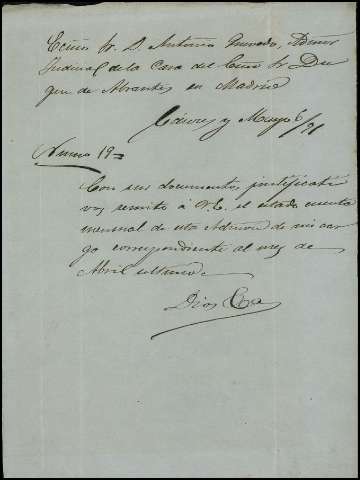 Ecmo Sr. D. Antonio Quevedo, Admor
Judicial de la Casa del Ecmo Sr Du
que de Abrantes en Madrid
Cáceres y Mayo 6/91
Numo 19=
Con sus documentos justificati
vos remito á V.E. el estado cuenta
mensual de esta Admon de mi car
go correspondiente al mes de
Abril último.
Dios &a